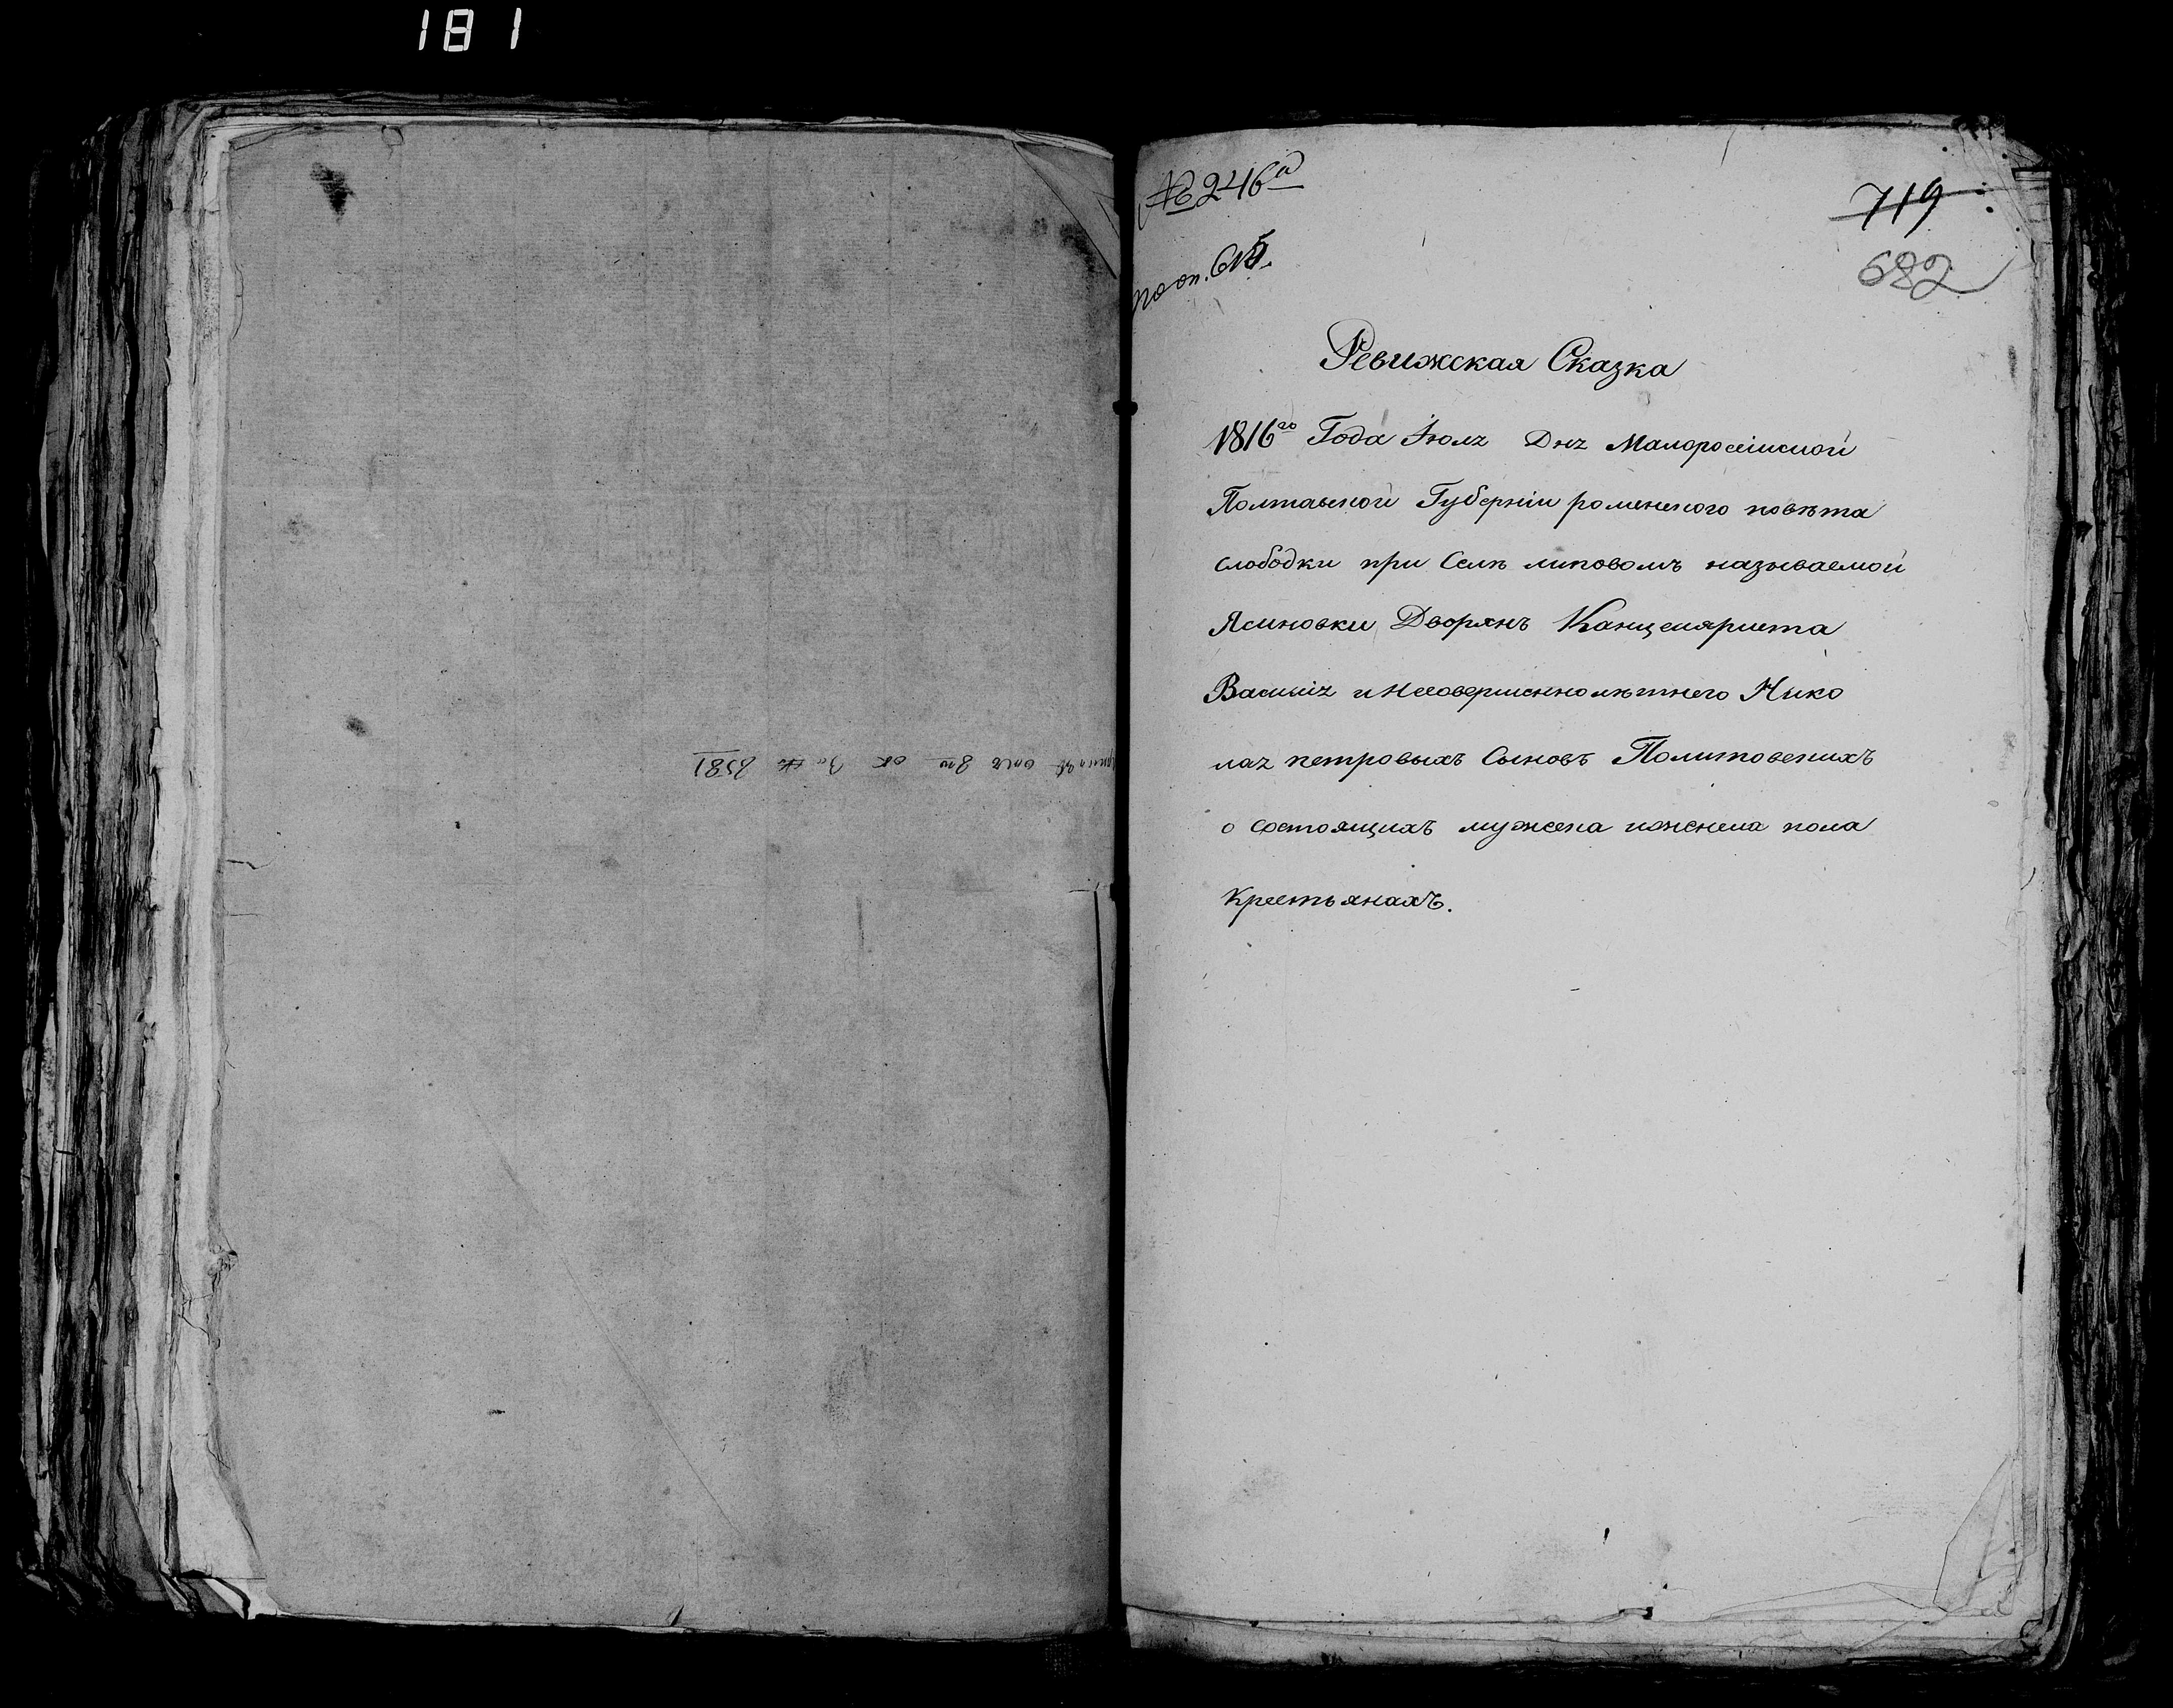 181
№ 246й
по оп. 615.
719
682
Ревижская Сказка
1816го Года Іюля Дня Малоросійской
Полтавской Губерніи роменского повѣта
слободки при Селѣ липовомъ называемой
Ясиновки Дворянъ Канцеляриста
Василія и Несовершеннолѣтнего Нико
лая петровыхъ Сыновъ Политовскихъ
о состоящихъ мужеска иженска пола
крестьянахъ.